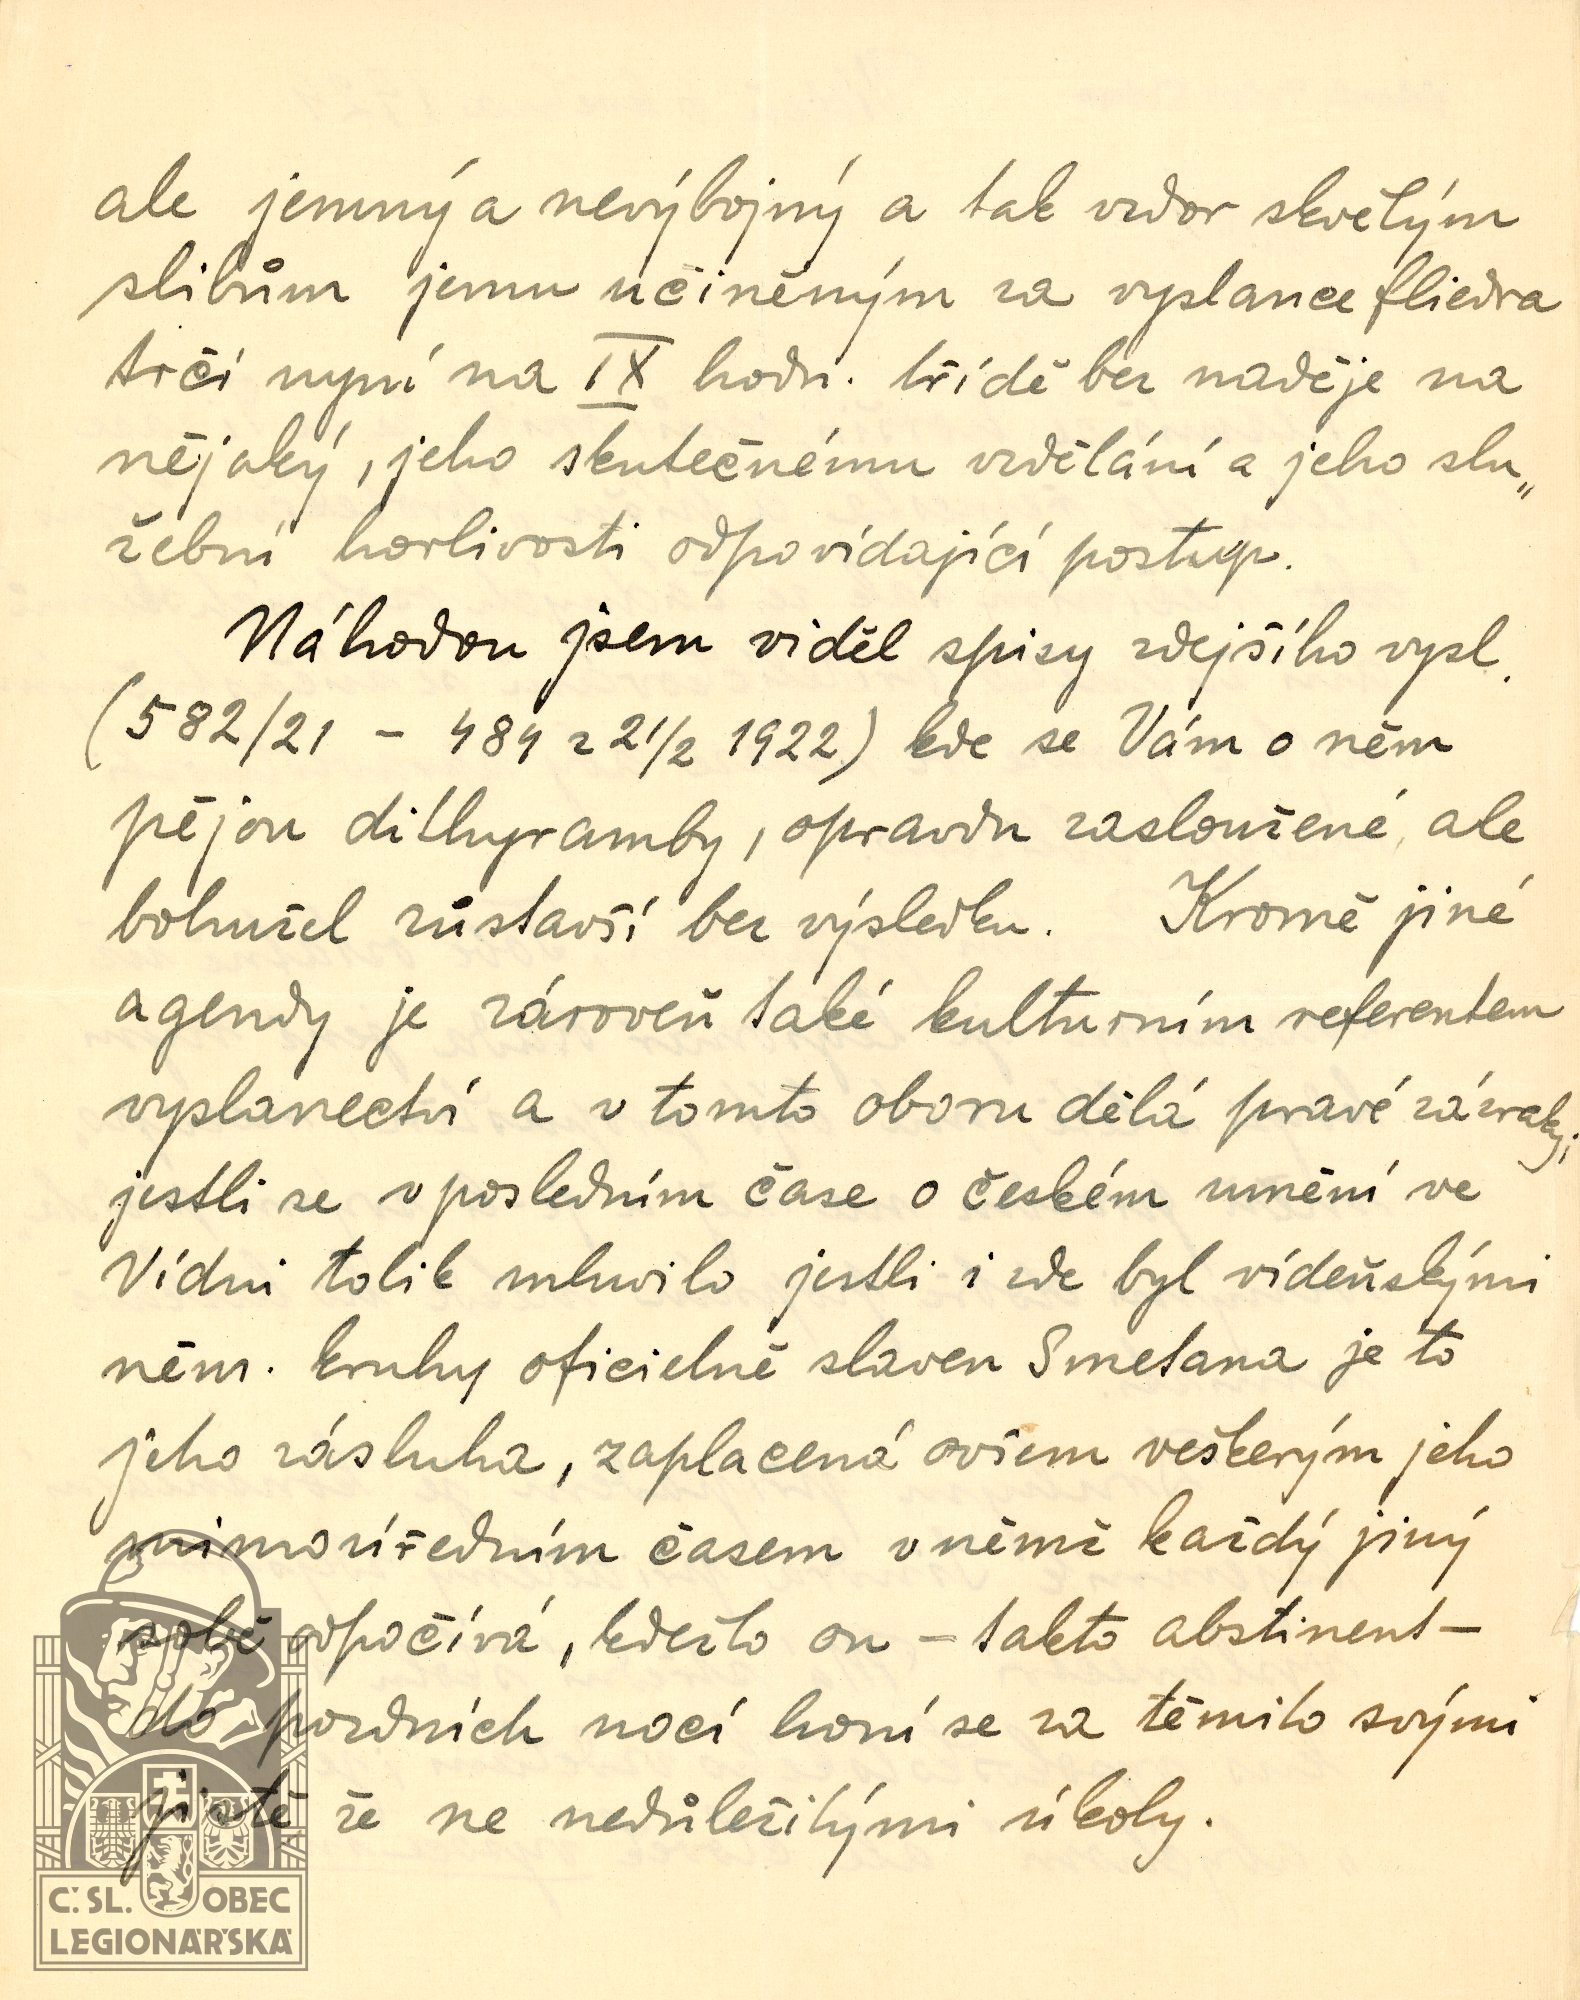 ale jemný a nevýbojný a tak vzdor skvělým
slibům jemu učiněným za vyslance Fliedra
trčí nyní na IX hodn. třídě bez naděje na
nějaký, jeho skutečnému vzdělání a jeho slu„
žební horlivosti odpovídající postup.
Náhodou jsem viděl spisy zdejšího vysl.
(582/21 - 484 z 21/2 1922) kde se Vám o něm
pějou dithyramby, opravdu zasloužené, ale
bohužel zůstavší bez výsledku. Kromě jiné
agendy je zároveň také kulturním referentem
vyslanectví a v tomto oboru dělá pravé zázraky;
jestli se v posledním čase o českém umění ve
Vídni tolik mluvilo jestli i zde byl vídeňskými
něm. kruhy oficielně slaven Smetana je to
jeho zásluha, zaplacená ovšem veškerým jeho
mimoúředním časem v němž každý jiný
sobě odpočívá, kdežto on - takto abstinent -
do pozdních nocí honí se za těmito svými
jistě že ne nedůležitými úkoly.
Č. SL. OBEC
LEGIONÁŘSKÁ